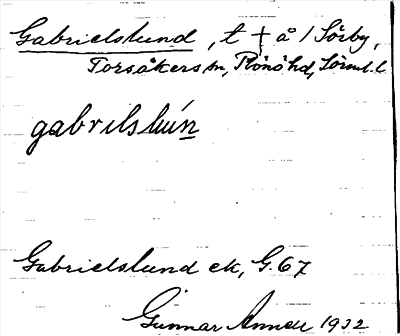 Gabrielslund, t † å / Sörby,
Torsåkers sn, Rönö hd, Sörml. l
gabrilslún
Gabrielslund ek, G. 67
Gunnar 1932